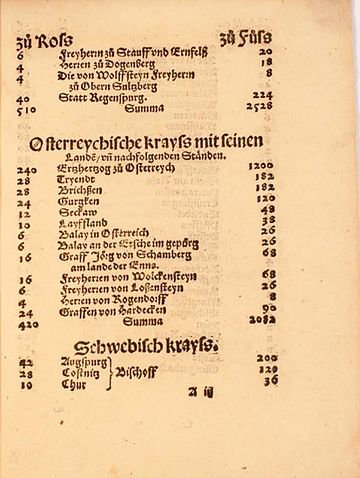 zů Ross zů Fůss
6 Freyherrn zů Stauff vnd Ernfelß 20
4 Herren zů Dogenberg 18
4 Die von Wolffsteyn Freyherrn 8
zů Obern Sultzberg
40 Statt Regenspurg. 224
510 Summa 2528
Osterreychische krayss mit seinen
Landẽ/ vñ nachfolgenden Stånden.
240 Ertzhertzog zů Osterreych 1200
28 Tryendt 182
28 Brichßen 182
24 Gurgken 120
12 Seckaw 48
10 Layffland 38
6 Balay in Osterreich 26
6 Balay an der Etsche im gepürg 26
16 Graff Jörg von Schamberg 68
am lande der Enns.
16 Freyherren von Wolckensteyn 68
6 Freyherren von Loßensteyn 26
4 Herren von Rogendorff 8
24 Graffen von Hardecken 90
420 Summa 2082
Schwebisch krayss.
42 Augspurg 200
28 Costnitz Bischoff 120
10 Chur 36
A iij